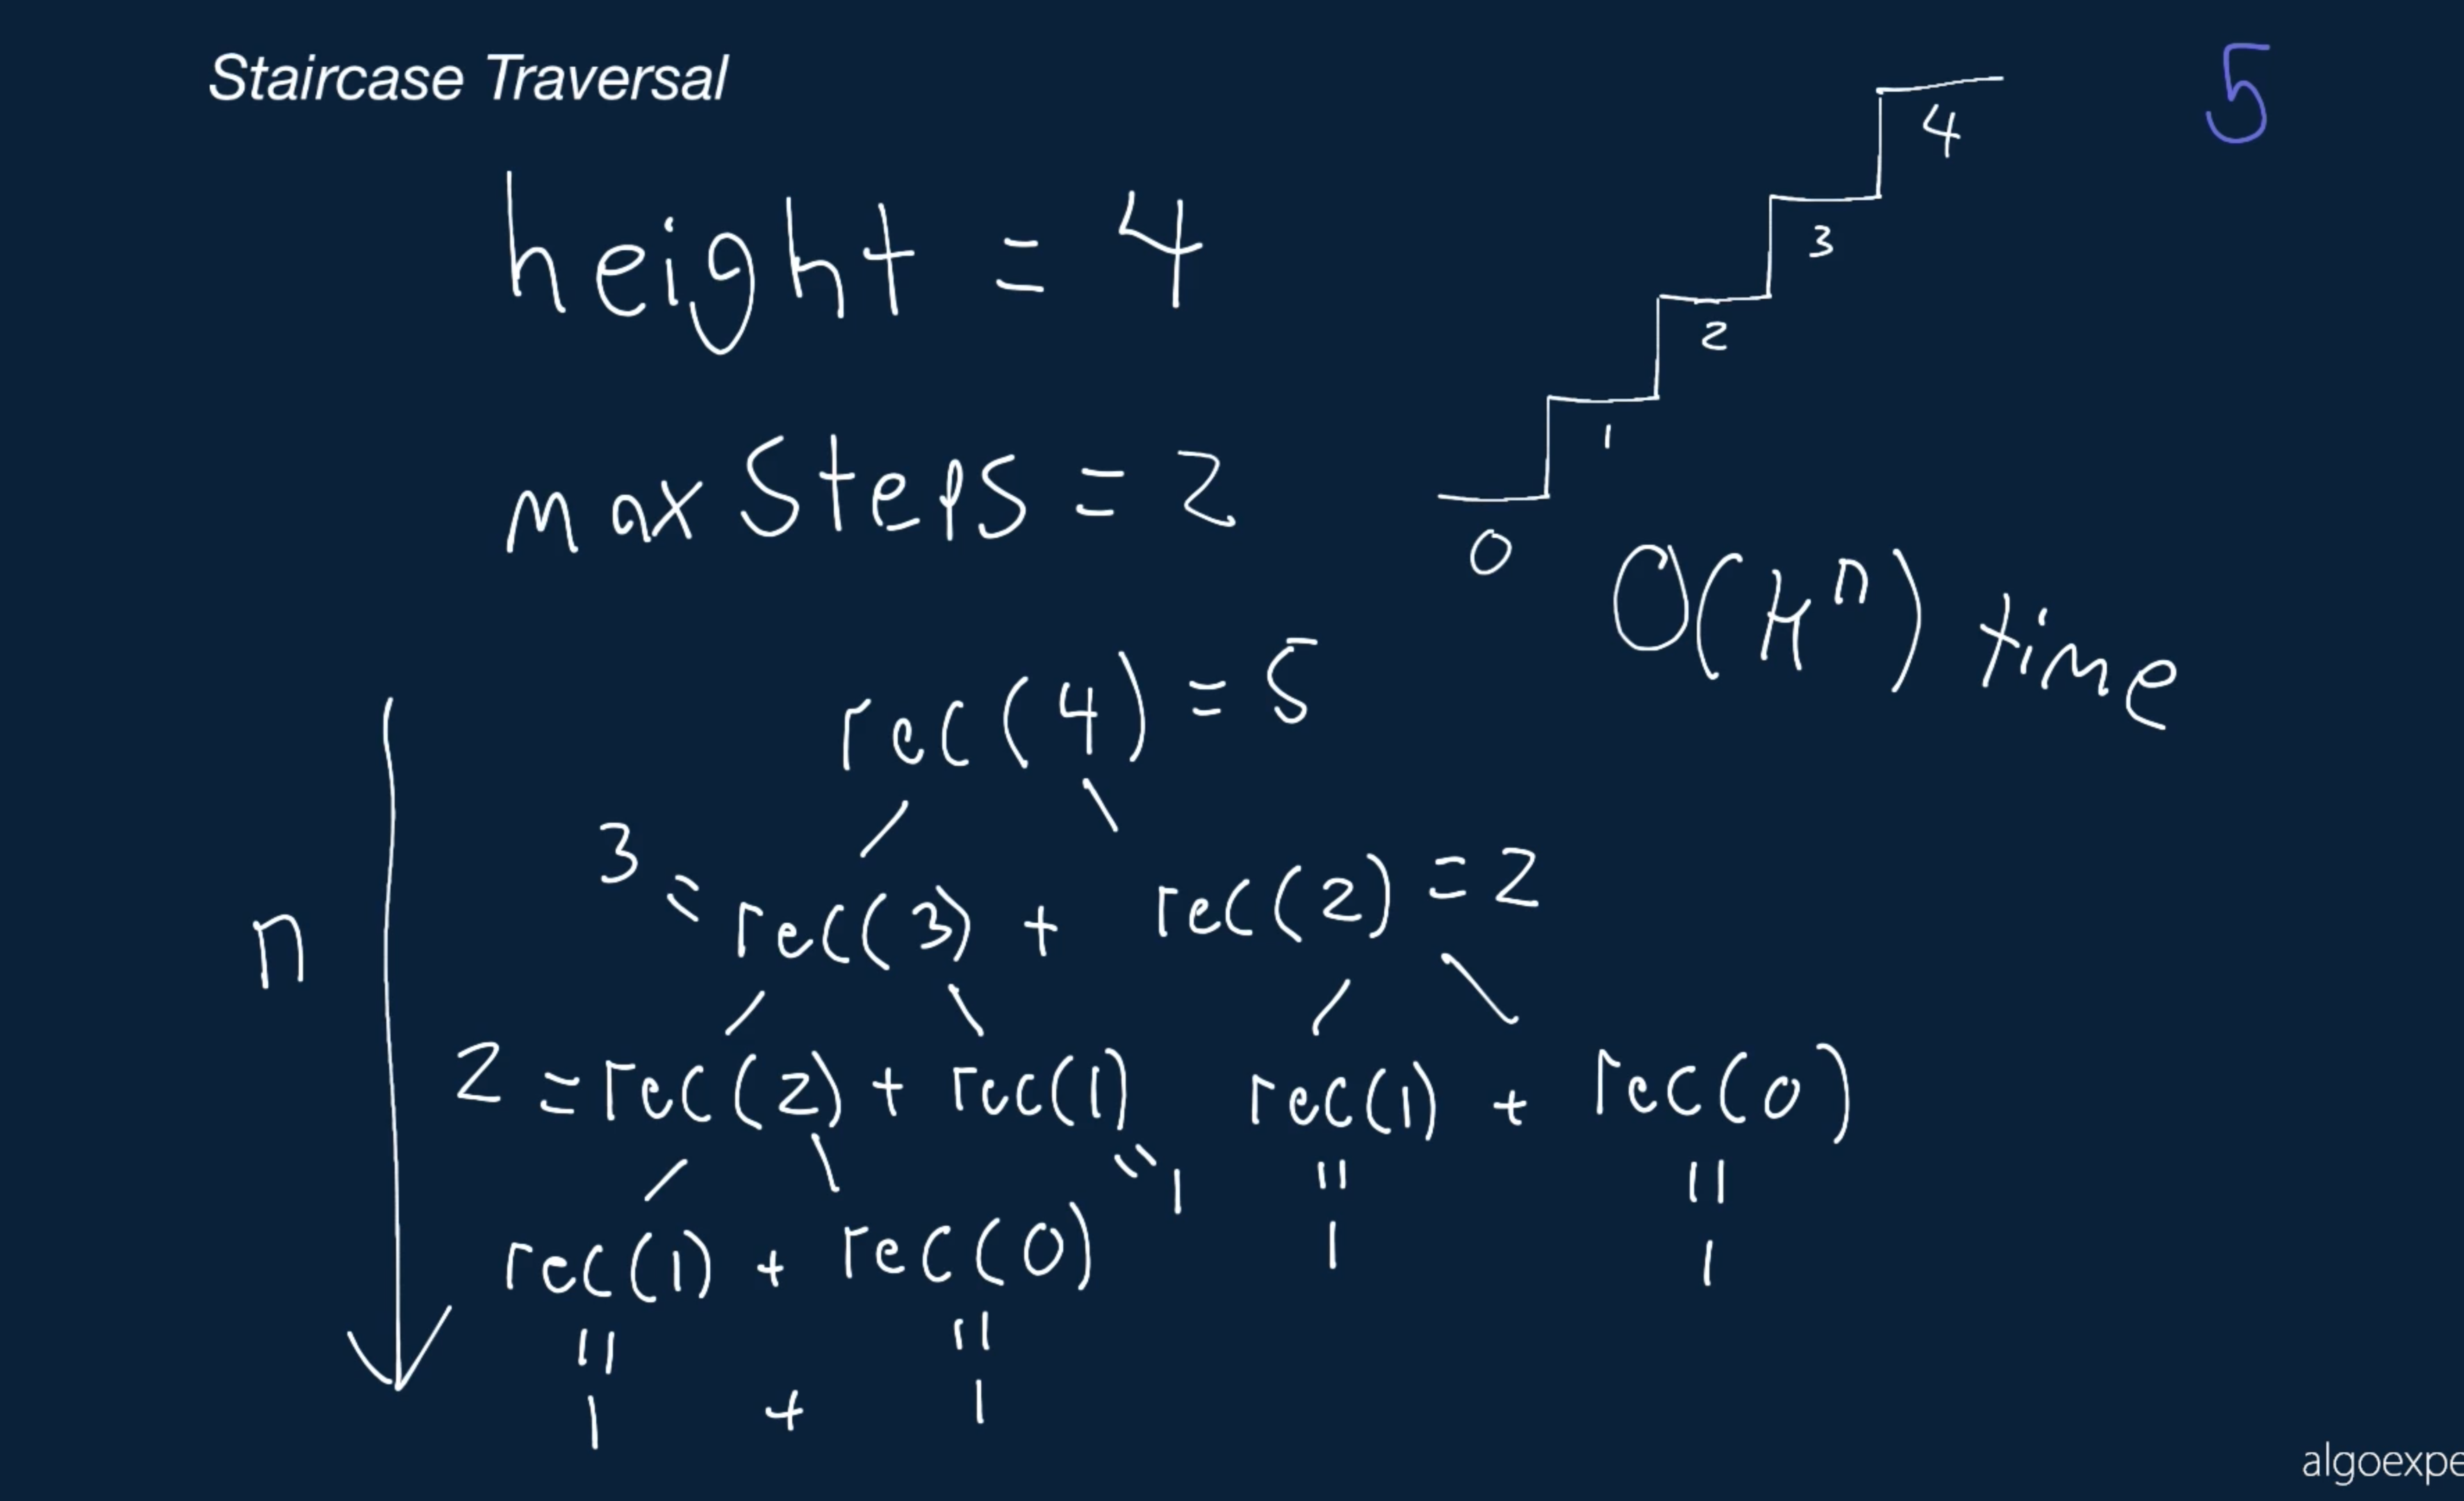 Staircase Traversal
5
4
height = 4
3
2
1
max Steps = 2
0
O(k^n) time
rec(4) = 5
3 = rec(3) + rec(2) = 2
n
2 = rec(2) + rec(1) rec(1) + rec(0)
= 1 = =
1 1
rec(1) + rec(0)
= =
1 + 1
algoexpe